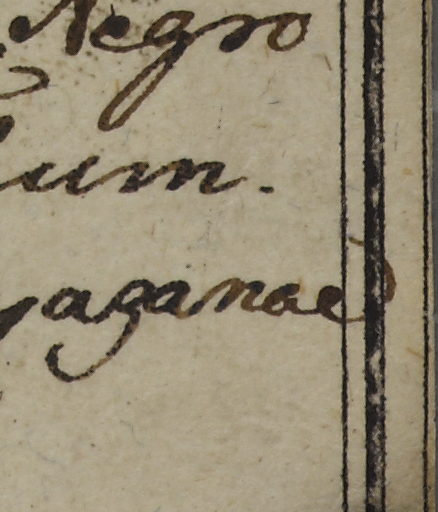 Negro
um.
yaganae